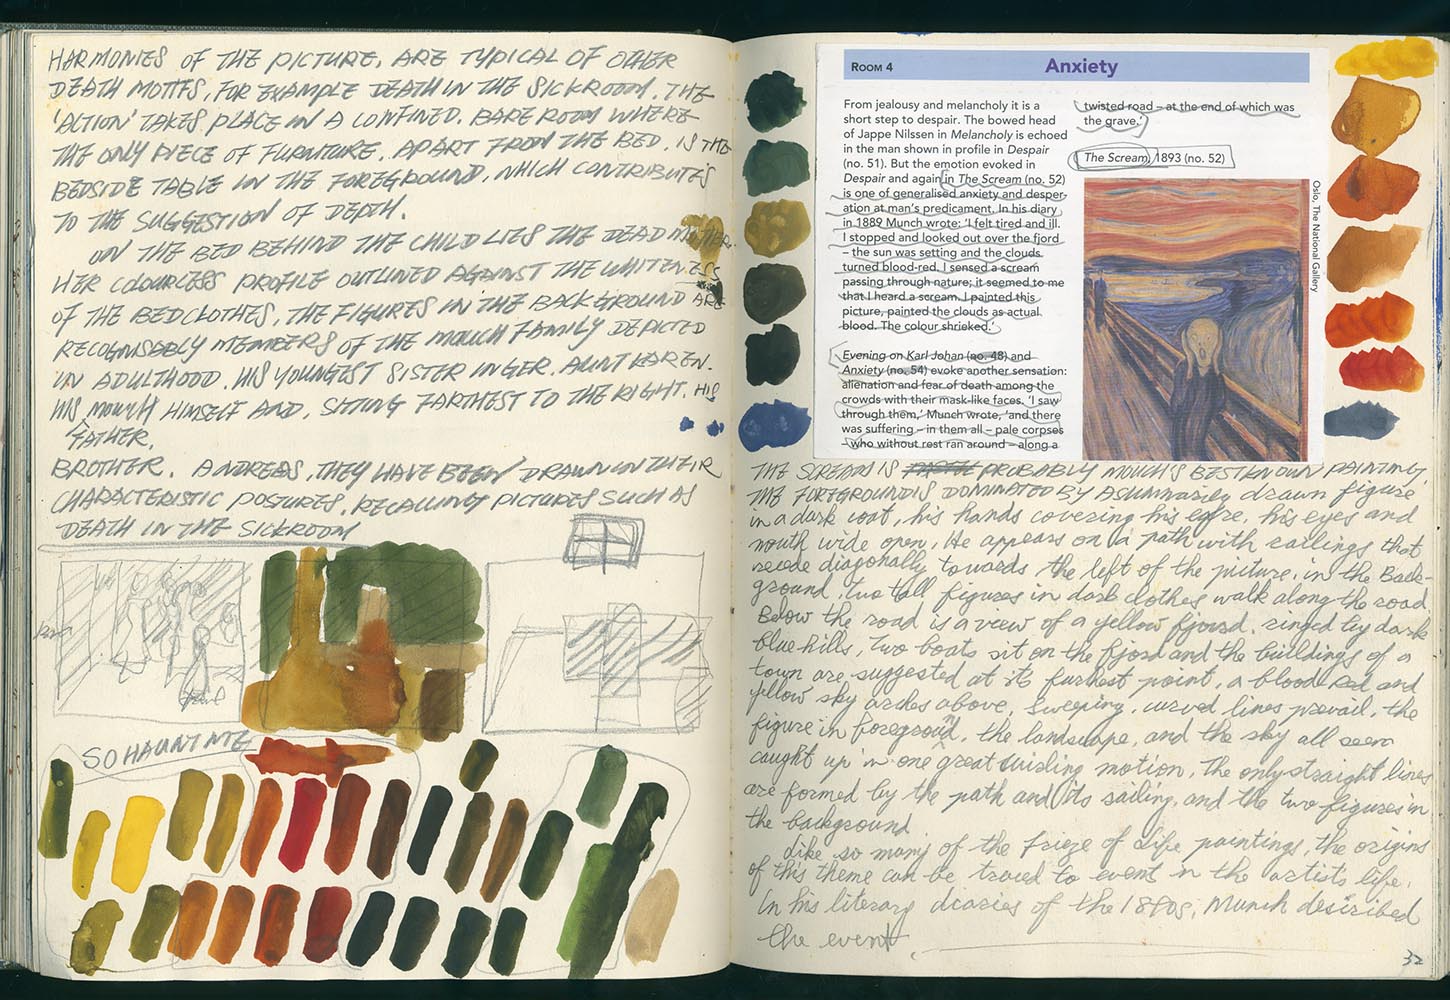 HARMONIES OF THE PICTURE, ARE TYPICAL OF OTHER
DEATH MOTIFS, FOR EXAMPLE DEATH IN THE SICKROOM. THE
'ACTION' TAKES PLACE IN A CONFINED, BARE ROOM WHERE
THE ONLY PIECE OF FURNITURE, APART FROM THE BED, IS THE
BEDSIDE TABLE IN THE FOREGROUND, WHICH CONTRIBUTES
TO THE SUGGESTION OF DEPTH.
ON THE BED BEHIND THE CHILD LIES THE DEAD MOTHER.
HER COLOURLESS PROFILE OUTLINED AGAINST THE WHITENESS
OF THE BEDCLOTHES, THE FIGURES IN THE BACKGROUND ARE
RECOGNISABLY MEMBERS OF THE MUNCH FAMILY DEPICTED
IN ADULTHOOD. HIS YOUNGEST SISTER INGER. AUNT KAREN.
MUNCH HIMSELF AND, SITTING FARTHEST TO THE RIGHT. HIS
FATHER.
BROTHER. ANDREAS. THEY HAVE BEEN DRAWN IN THEIR
CHARACTERISTIC POSTURES, RECALLING PICTURES SUCH AS
DEATH IN THE SICKROOM
SO HAUNTING
ROOM 4
Anxiety
From jealousy and melancholy it is a
short step to despair. The bowed head
of Jappe Nilssen in Melancholy is echoed
in the man shown in profile in Despair
(no. 51). But the emotion evoked in
Despair and again in The Scream (no. 52)
is one of generalised anxiety and desper-
ation at man's predicament. In his diary
in 1889 Munch wrote: 'I felt tired and ill.
I stopped and looked out over the fjord
– the sun was setting and the clouds
turned blood-red. I sensed a scream
passing through nature; it seemed to me
that I heard a scream. I painted this
picture, painted the clouds as actual
blood. The colour shrieked.'
Evening on Karl Johan (no. 48) and
Anxiety (no. 54) evoke another sensation:
alienation and fear of death among the
crowds with their mask-like faces. 'I saw
through them,' Munch wrote, 'and there
was suffering – in them all – pale corpses
– who without rest ran around – along a
twisted road – at the end of which was
the grave.'
The Scream, 1893 (no. 52)
Oslo, The National Gallery
THE SCREAM IS PROBABLY MUNCH'S BEST KNOWN PAINTING.
THE FOREGROUND IS DOMINATED BY A SUMMARILY drawn figure
in a dark coat, his hands covering his ears, his eyes and
mouth wide open, He appears on a path with railings that
recede diagonally towards the left of the picture. in the Back-
ground, two tall figures in dark clothes walk along the road.
Below the road is a view of a yellow fjord, ringed by dark
blue hills, Two boats sit on the fjord and the buildings of a
town are suggested at its furthest point, a blood Red and
yellow sky arches above, Sweeping, curved lines prevail, the
figure in foreground, the landscape, and the sky all seem
caught up in one great swirling motion, The only straight lines
are formed by the path and its railing, and the two figures in
the background
Like so many of the Frieze of Life paintings, the origins
of this theme can be traced to event in the artist's life.
In his literary diaries of the 1880s, Munch described
the event
32